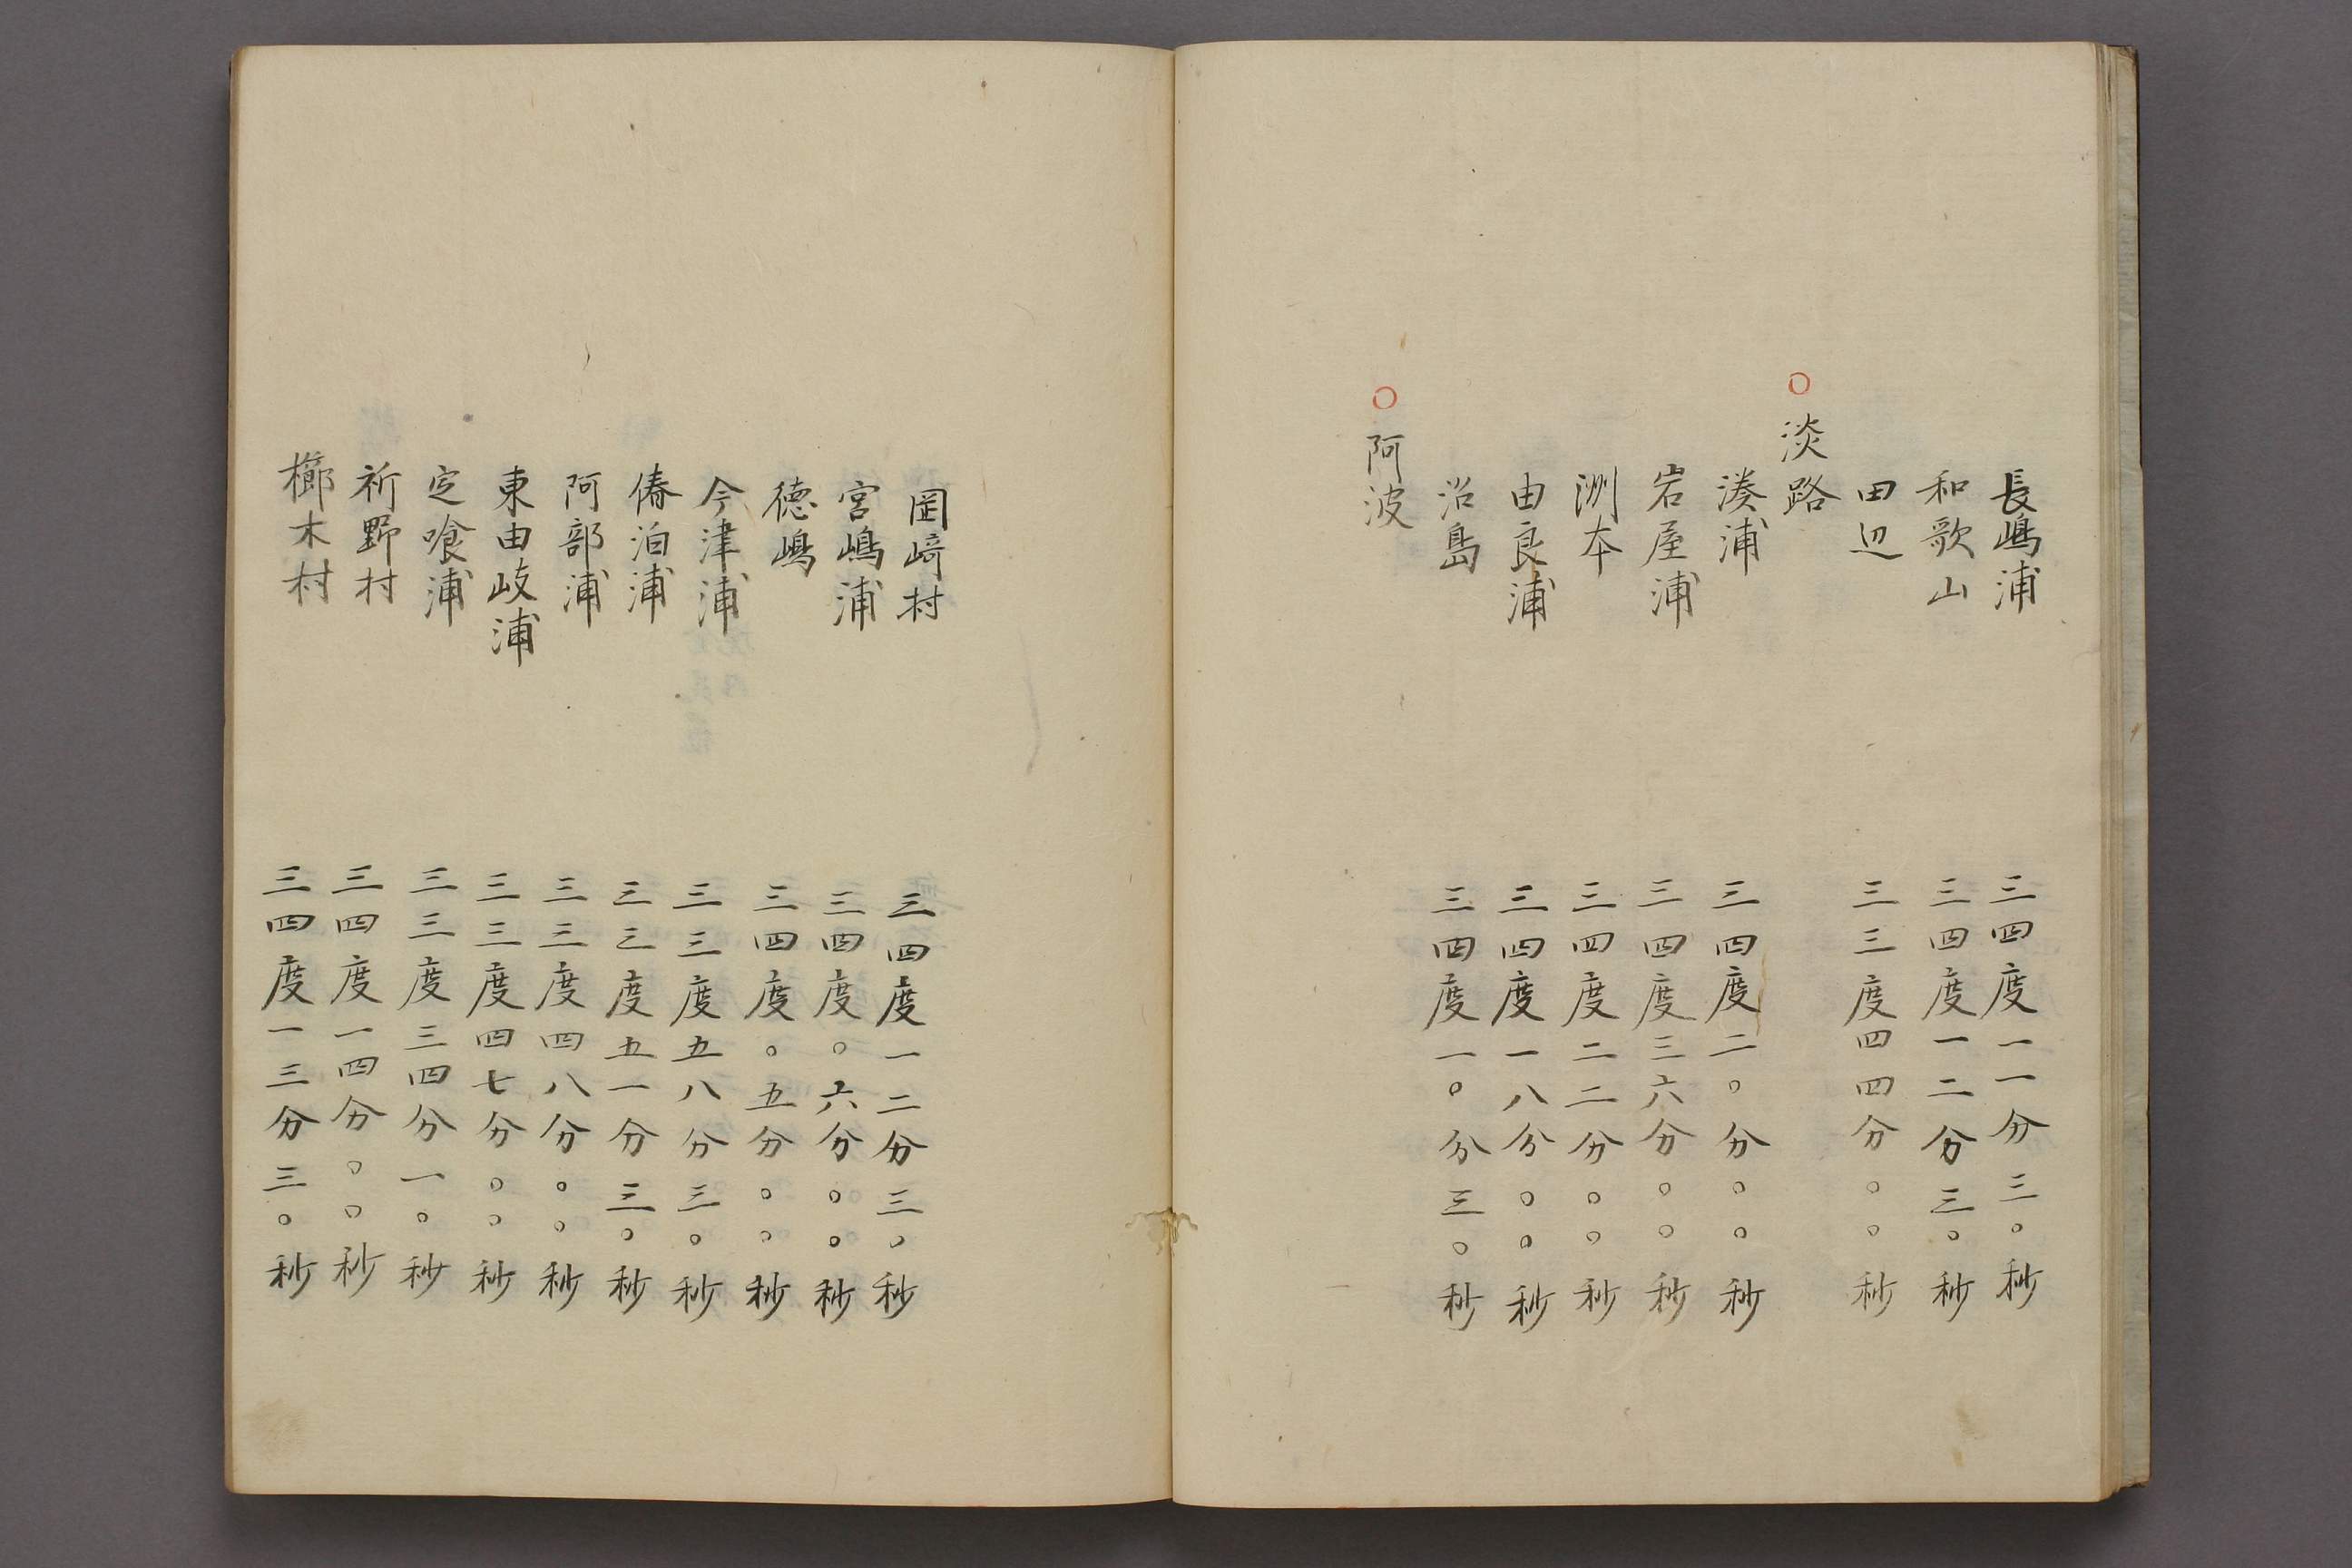 長嶋浦 三四度一一分三〇秒
和歌山 三四度一二分三〇秒
田辺 三三度四四分〇〇秒
〇淡路
湊浦 三四度二〇分〇〇秒
岩屋浦 三四度三六分〇〇秒
洲本 三四度二二分〇〇秒
由良浦 三四度一八分〇〇秒
沼島 三四度一〇分三〇秒
〇阿波
岡﨑村 三四度一二分三〇秒
宮嶋浦 三四度〇六分〇〇秒
徳嶋 三四度〇五分〇〇秒
今津浦 三三度五八分三〇秒
椿泊浦 三三度五一分三〇秒
阿部浦 三三度四八分〇〇秒
東由岐浦 三三度四七分〇〇秒
宍喰浦 三三度三四分一〇秒
祈野村 三四度一四分〇〇秒
櫛木村 三四度一三分三〇秒